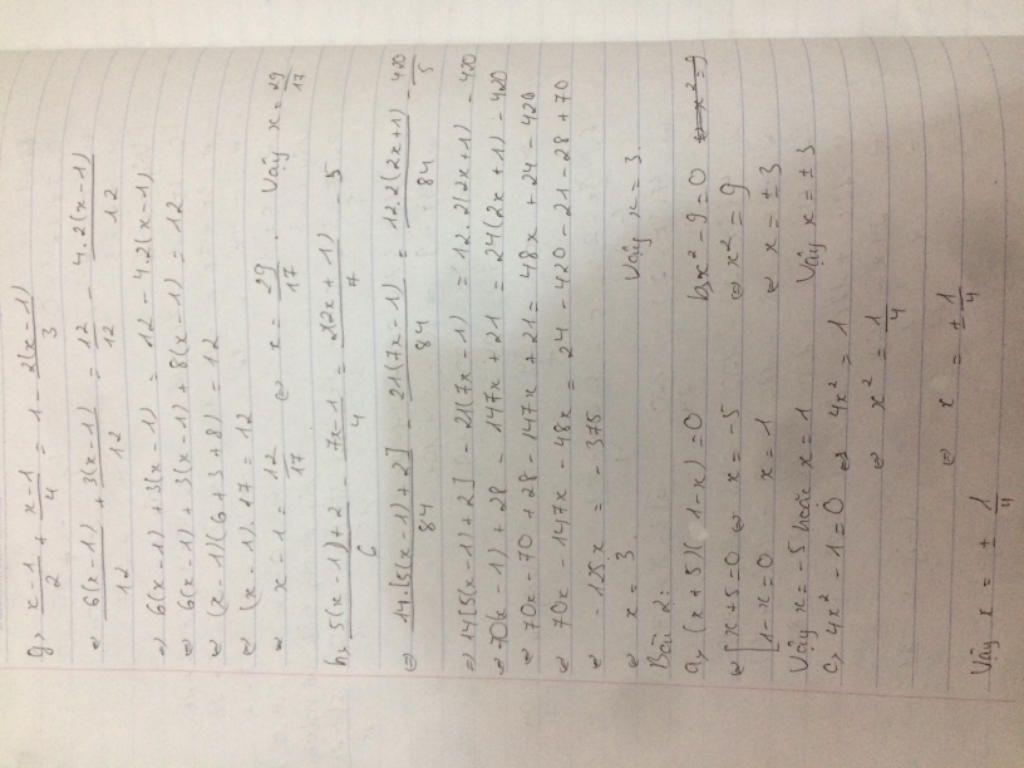 g, x-1/2 + x-1/4 = 1 - 2(x-1)/3
⇔ 6(x-1)/12 + 3(x-1)/12 = 12/12 - 4.2(x-1)/12
⇒ 6(x-1) + 3(x-1) = 12 - 4.2(x-1)
⇔ 6(x-1) + 3(x-1) + 8(x-1) = 12
⇔ (x-1)(6+3+8) = 12
⇔ (x-1).17 = 12
⇔ x-1 = 12/17 ⇔ x = 29/17. Vậy x = 29/17
h, 5(x-1)+2/6 - 7x-1/4 = 2(2x+1)/7 - 5
⇔ 14.[5(x-1)+2]/84 - 21(7x-1)/84 = 12.2(2x+1)/84 - 420/5
⇒ 14[5(x-1)+2] - 21(7x-1) = 12.2(2x+1) - 420
⇔ 70(x-1)+28 - 147x+21 = 24(2x+1) - 420
⇔ 70x-70+28-147x+21 = 48x+24-420
⇔ 70x-147x-48x = 24-420-21-28+70
⇔ -125x = -375
⇔ x = 3. Vậy x = 3.
Bài 2:
a, (x+5)(1-x)=0 b, x²-9=0
⇔ [x+5=0 ⇔ x=-5 ⇔ x²=9
[1-x=0 x=1 ⇔ x=±3
Vậy x=-5 hoặc x=1 Vậy x=±3
c, 4x²-1=0 ⇔ 4x²=1
⇔ x²=1/4
⇔ x = ±1/4
Vậy x = ±1/4